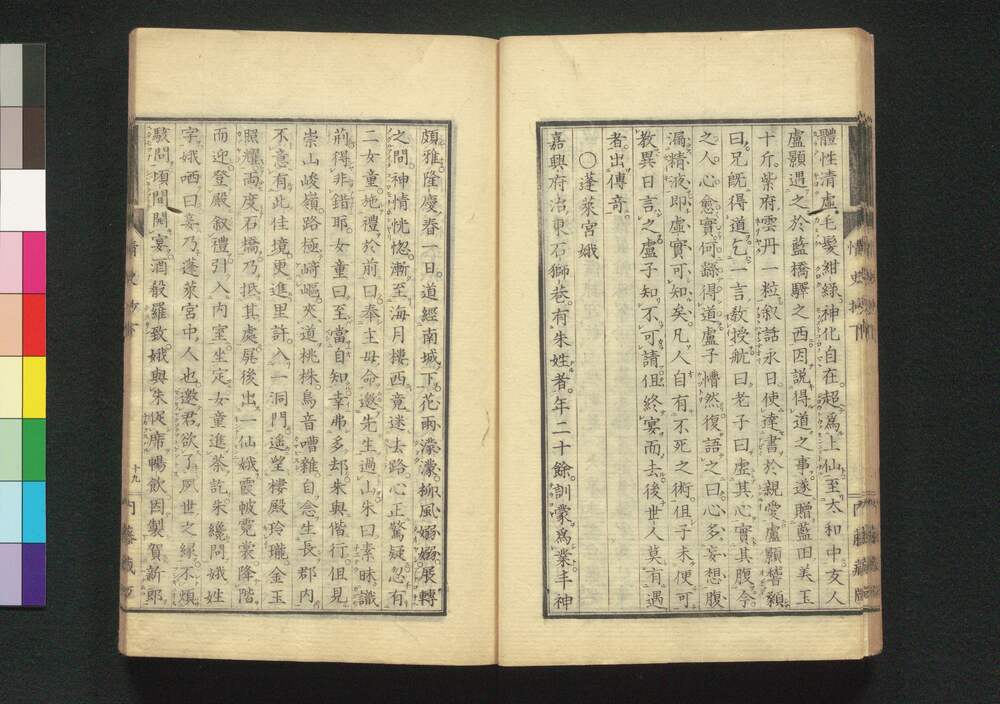 體性清虛毛髮紺綠神化自在超爲上仙至太和中友人
盧顥遇之於藍橋驛之西因說得道之事遂贈藍田美玉
十斤紫府雲丹一粒叙話永日使達書於親愛盧顥稽顙
曰兄既得道乞一言教授航曰老子曰虛其心實其腹今
之人心愈實何繇得道盧子懵然復語之曰心多妄想腹
漏精液即虛實可知矣凡人自有不死之術但子未便可
教異日言之盧子知不可請但終宴而去後世人莫有遇
者出傳奇
〇蓬萊宮娥
嘉興府治東石獅巷有朱姓者年二十餘訓蒙爲業丰神
情史抄下
頗雅隆慶春一日道經南城下花雨濛濛柳風嫋嫋展轉
之間神情恍惚漸至海月樓西竟迷去路心正驚疑忽有
二女童地禮於前曰奉主母命邀先生過山朱曰素昧識
荊得非錯耶女童曰至當自知幸弗多却朱與偕行但見
崇山峻嶺路極崎嶇夾道桃株鳥音嘈雜自念生長郡內
不意有此佳境更進里許入一洞門遙望樓殿玲瓏金玉
照耀兩度石橋乃抵其處屏後出一仙娥霞帔霓裳降階
而迎登殿叙禮引入內室坐定女童進茶訖朱纔問娥姓
字娥哂曰妾乃蓬萊宮中人也邀君欲了夙世之緣不煩
駭問頃間開宴酒殽羅致娥與朱促席暢飲因製賀新郎
十九